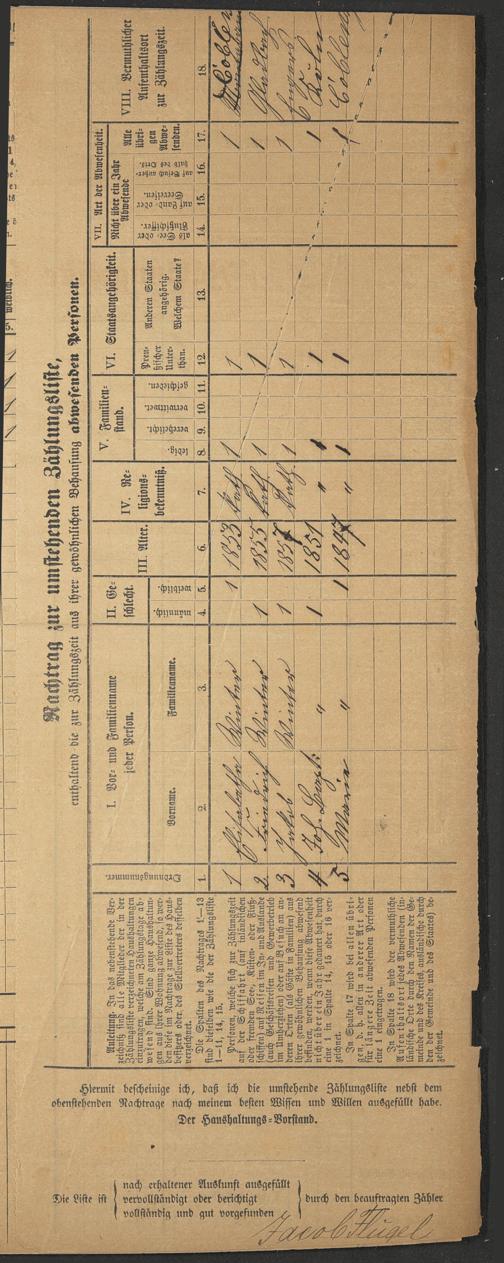 Nachtrag zur umstehenden Zählungsliste,
enthaltend die zur Zählungszeit aus ihrer gewöhnlichen Behausung abwesenden Personen.
Ordnungsnummer.
I. Vor- und Familienname
jeder Person.
Vorname.
Familienname.
II. Ge-
schlecht.
männlich.
weiblich.
III. Alter.
IV. Re-
ligions-
bekenntniß.
V. Familien-
stand.
ledig.
verheirathet.
verwittwet.
geschieden.
VI. Staatsangehörigkeit.
Preu-
ßischer
Unter-
than.
Anderen Staaten
angehörig.
Welchem Staate?
VII. Art der Abwesenheit.
Nicht über ein Jahr
Abwesende
als See- oder
Flußschiffer.
auf Land- oder
Seereisen.
auf Besuch außer-
halb des Orts.
Alle
übri-
gen
Abwe-
senden.
VIII. Vermuthlicher
Aufenthaltsort
zur Zählungszeit.
1. 2. 3. 4. 5. 6. 7. 8. 9. 10. 11. 12. 13. 14. 15. 16. 17. 18.
1 Winter 1 1853 Kath 1 1 1 Coblenz
2 Friedrich Winter 1 1855 Kath. 1 1 1 Gladbach
3 Jakob Winter 1 1857 Kath. 1 1 1 Engers
4 Joh. " 1 1851 " 1 1 1 Köln
5 Maria " 1 1847 " 1 1 1 Coblenz
Anleitung. In das nebenstehende Ver-
zeichniß sind alle Mitglieder der in der
Zählungsliste verzeichneten Haushaltungen
einzutragen, welche am Zählungstage ab-
wesend sind. Sind ganze Haushaltun-
gen aus ihrer Wohnung abwesend, so wer-
den sie in dem Nachtrage zur Liste des Haus-
besitzers oder des Stellvertreters desselben
verzeichnet.
Die Spalten des Nachtrages 1—13
sind dieselben wie die der Zählungsliste
1—11, 14, 15.
Personen, welche sich zur Zählungszeit
auf der Schiffahrt (auf inländischen
oder fremden See-, Küsten- oder Fluß-
schiffen) auf Reisen im In- und Auslande
(auch Geschäftsreisen und Gewerbebetrieb
im Umherziehen) oder auf Besuch an an-
deren Orten (als Gäste in Familien) aus
ihrer gewöhnlichen Behausung abwesend
befinden, werden, wenn diese Abwesenheit
nicht über ein Jahr gedauert hat, durch
eine 1 in Spalte 14, 15 oder 16 ver-
zeichnet.
In Spalte 17 wird bei allen übri-
gen, d. h. allen in anderer Art oder
für längere Zeit abwesenden Personen
eine 1 eingetragen.
In Spalte 18 wird der vermuthliche
Aufenthaltsort jedes Abwesenden (in-
ländische Orte durch den Namen der Ge-
meinde und des Kreises, ausländische durch
den der Gemeinde und des Staates) be-
zeichnet.
Hiermit bescheinige ich, daß ich die umstehende Zählungsliste nebst dem
obenstehenden Nachtrage nach meinem besten Wissen und Willen ausgefüllt habe.
Der Haushaltungs-Vorstand.
Die Liste ist
nach erhaltener Auskunft ausgefüllt
vervollständigt oder berichtigt
vollständig und gut vorgefunden
durch den beauftragten Zähler
Jacob Flügel